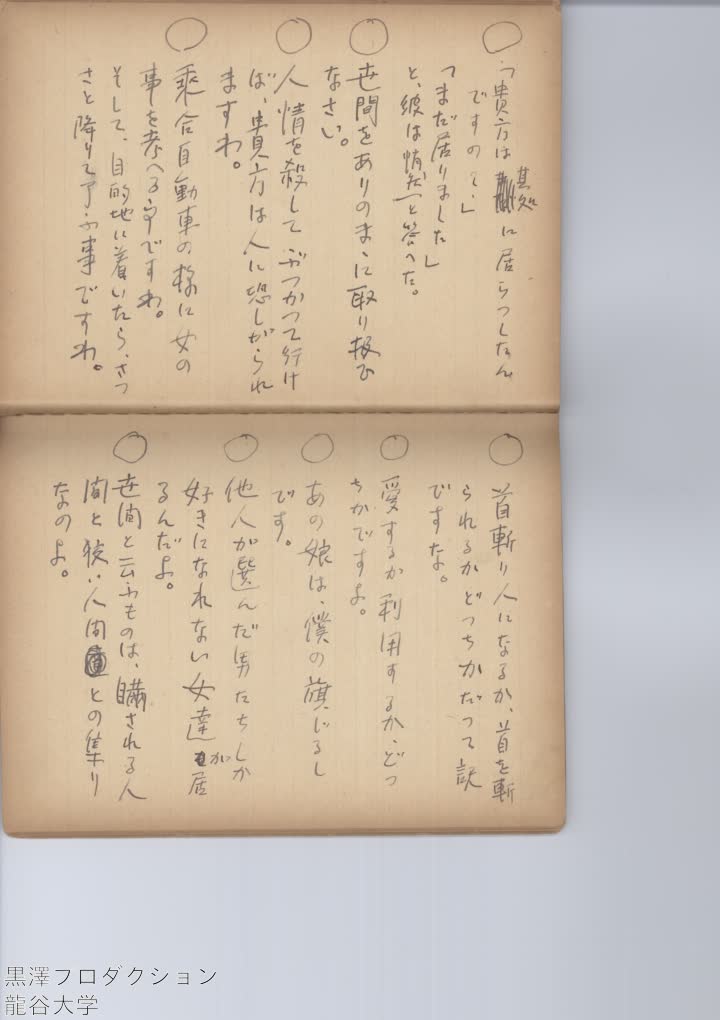 ○「貴方は其処に居らつしたん
ですので」
「まだ居りました」
と、彼は惰然と答へた。
○世間をありのまゝに取り扱ひ
なさい。
○人情を殺してぶつかつて行け
ば、貴方は人に恐しがられ
ますわ。
○乗合自動車の様に女の
事を考へる事ですわ。
そして、目的地に着いたら、さつ
さと降りて了ふ事ですわ。
○首斬り人になるか、首を斬
られるかどつちかだつて訳
ですな。
○愛するか利用するか、どつ
ちかですよ。
○あの娘は、僕の旗じるし
です。
○他人が選んだ男たちしか
好きになれない女達が居
るんだよ。
○世間と云ふものは、瞞される人
間と狡い人間との集り
なのよ。
黒澤プロダクション
龍谷大学